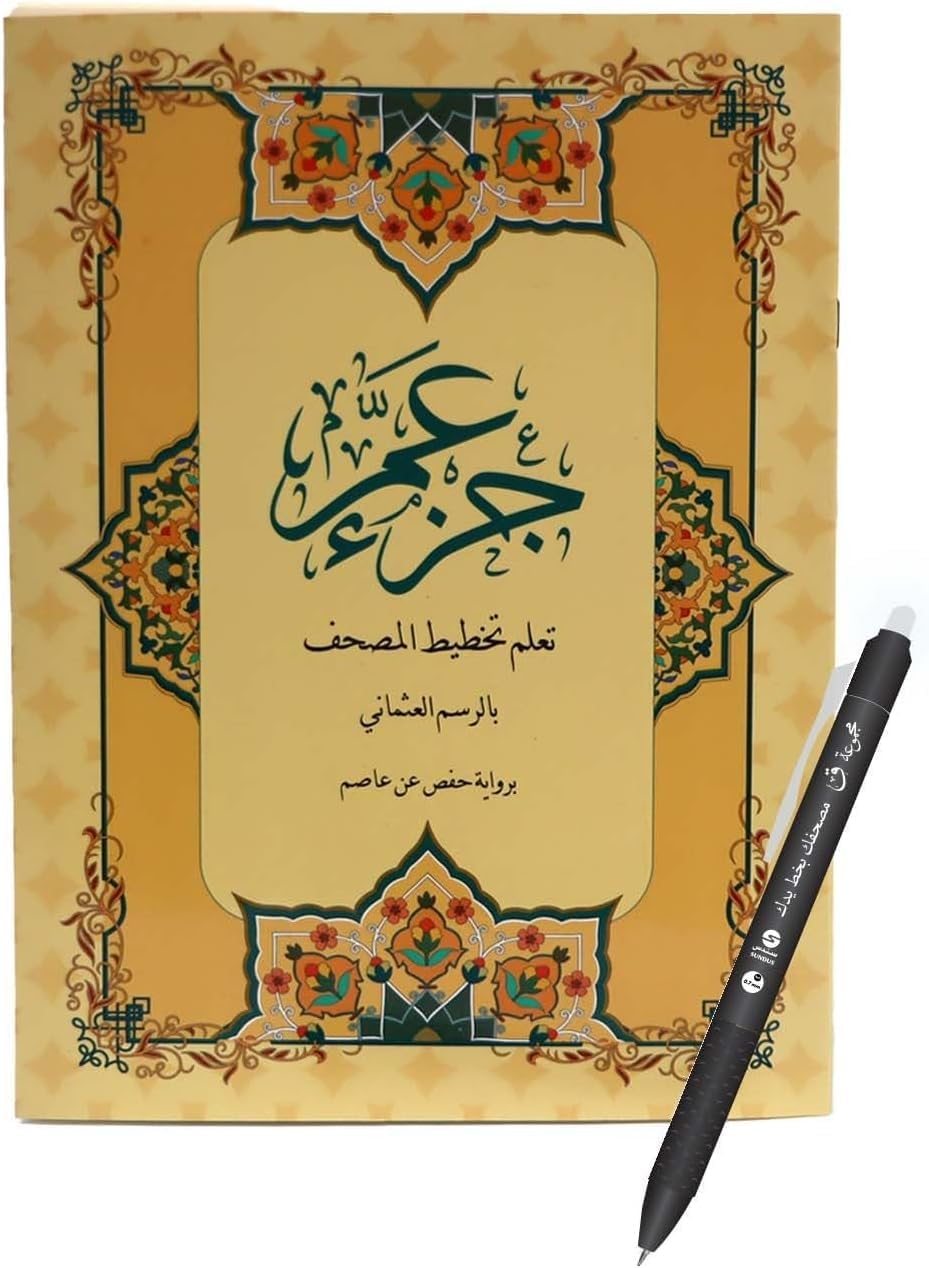 جزء عمّ
تعلم تخطيط المصحف
بالرسم العثماني
برواية حفص عن عاصم
مجموعة ق مصحفك بخط يدك
سندس
SUNDUS
0.7 mm